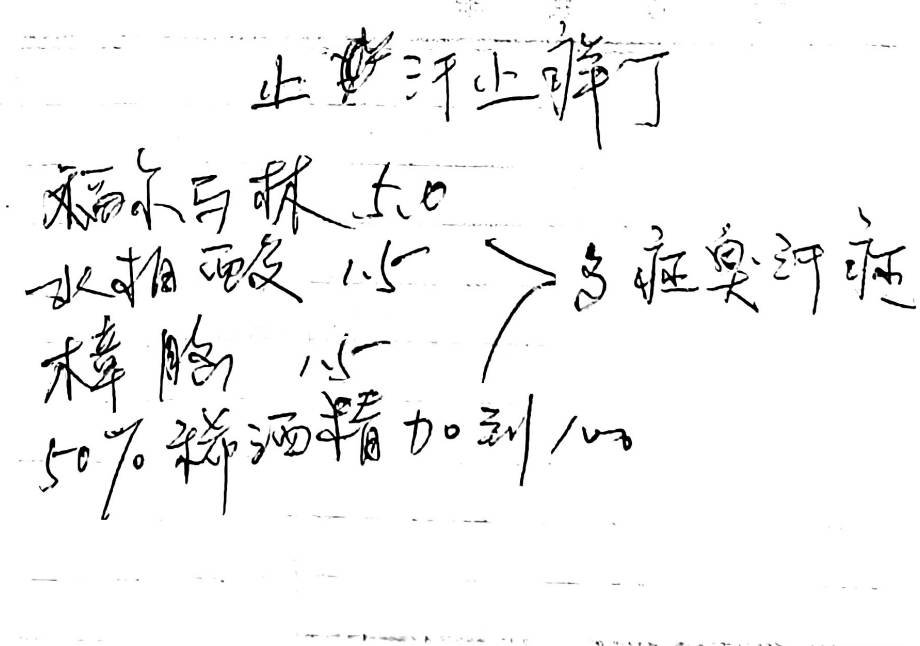 止汗止痒丁
福尔马林 5.0
水相酸 1.5
樟脑 1.5
多症臭汗症
50%稀酒精加到100